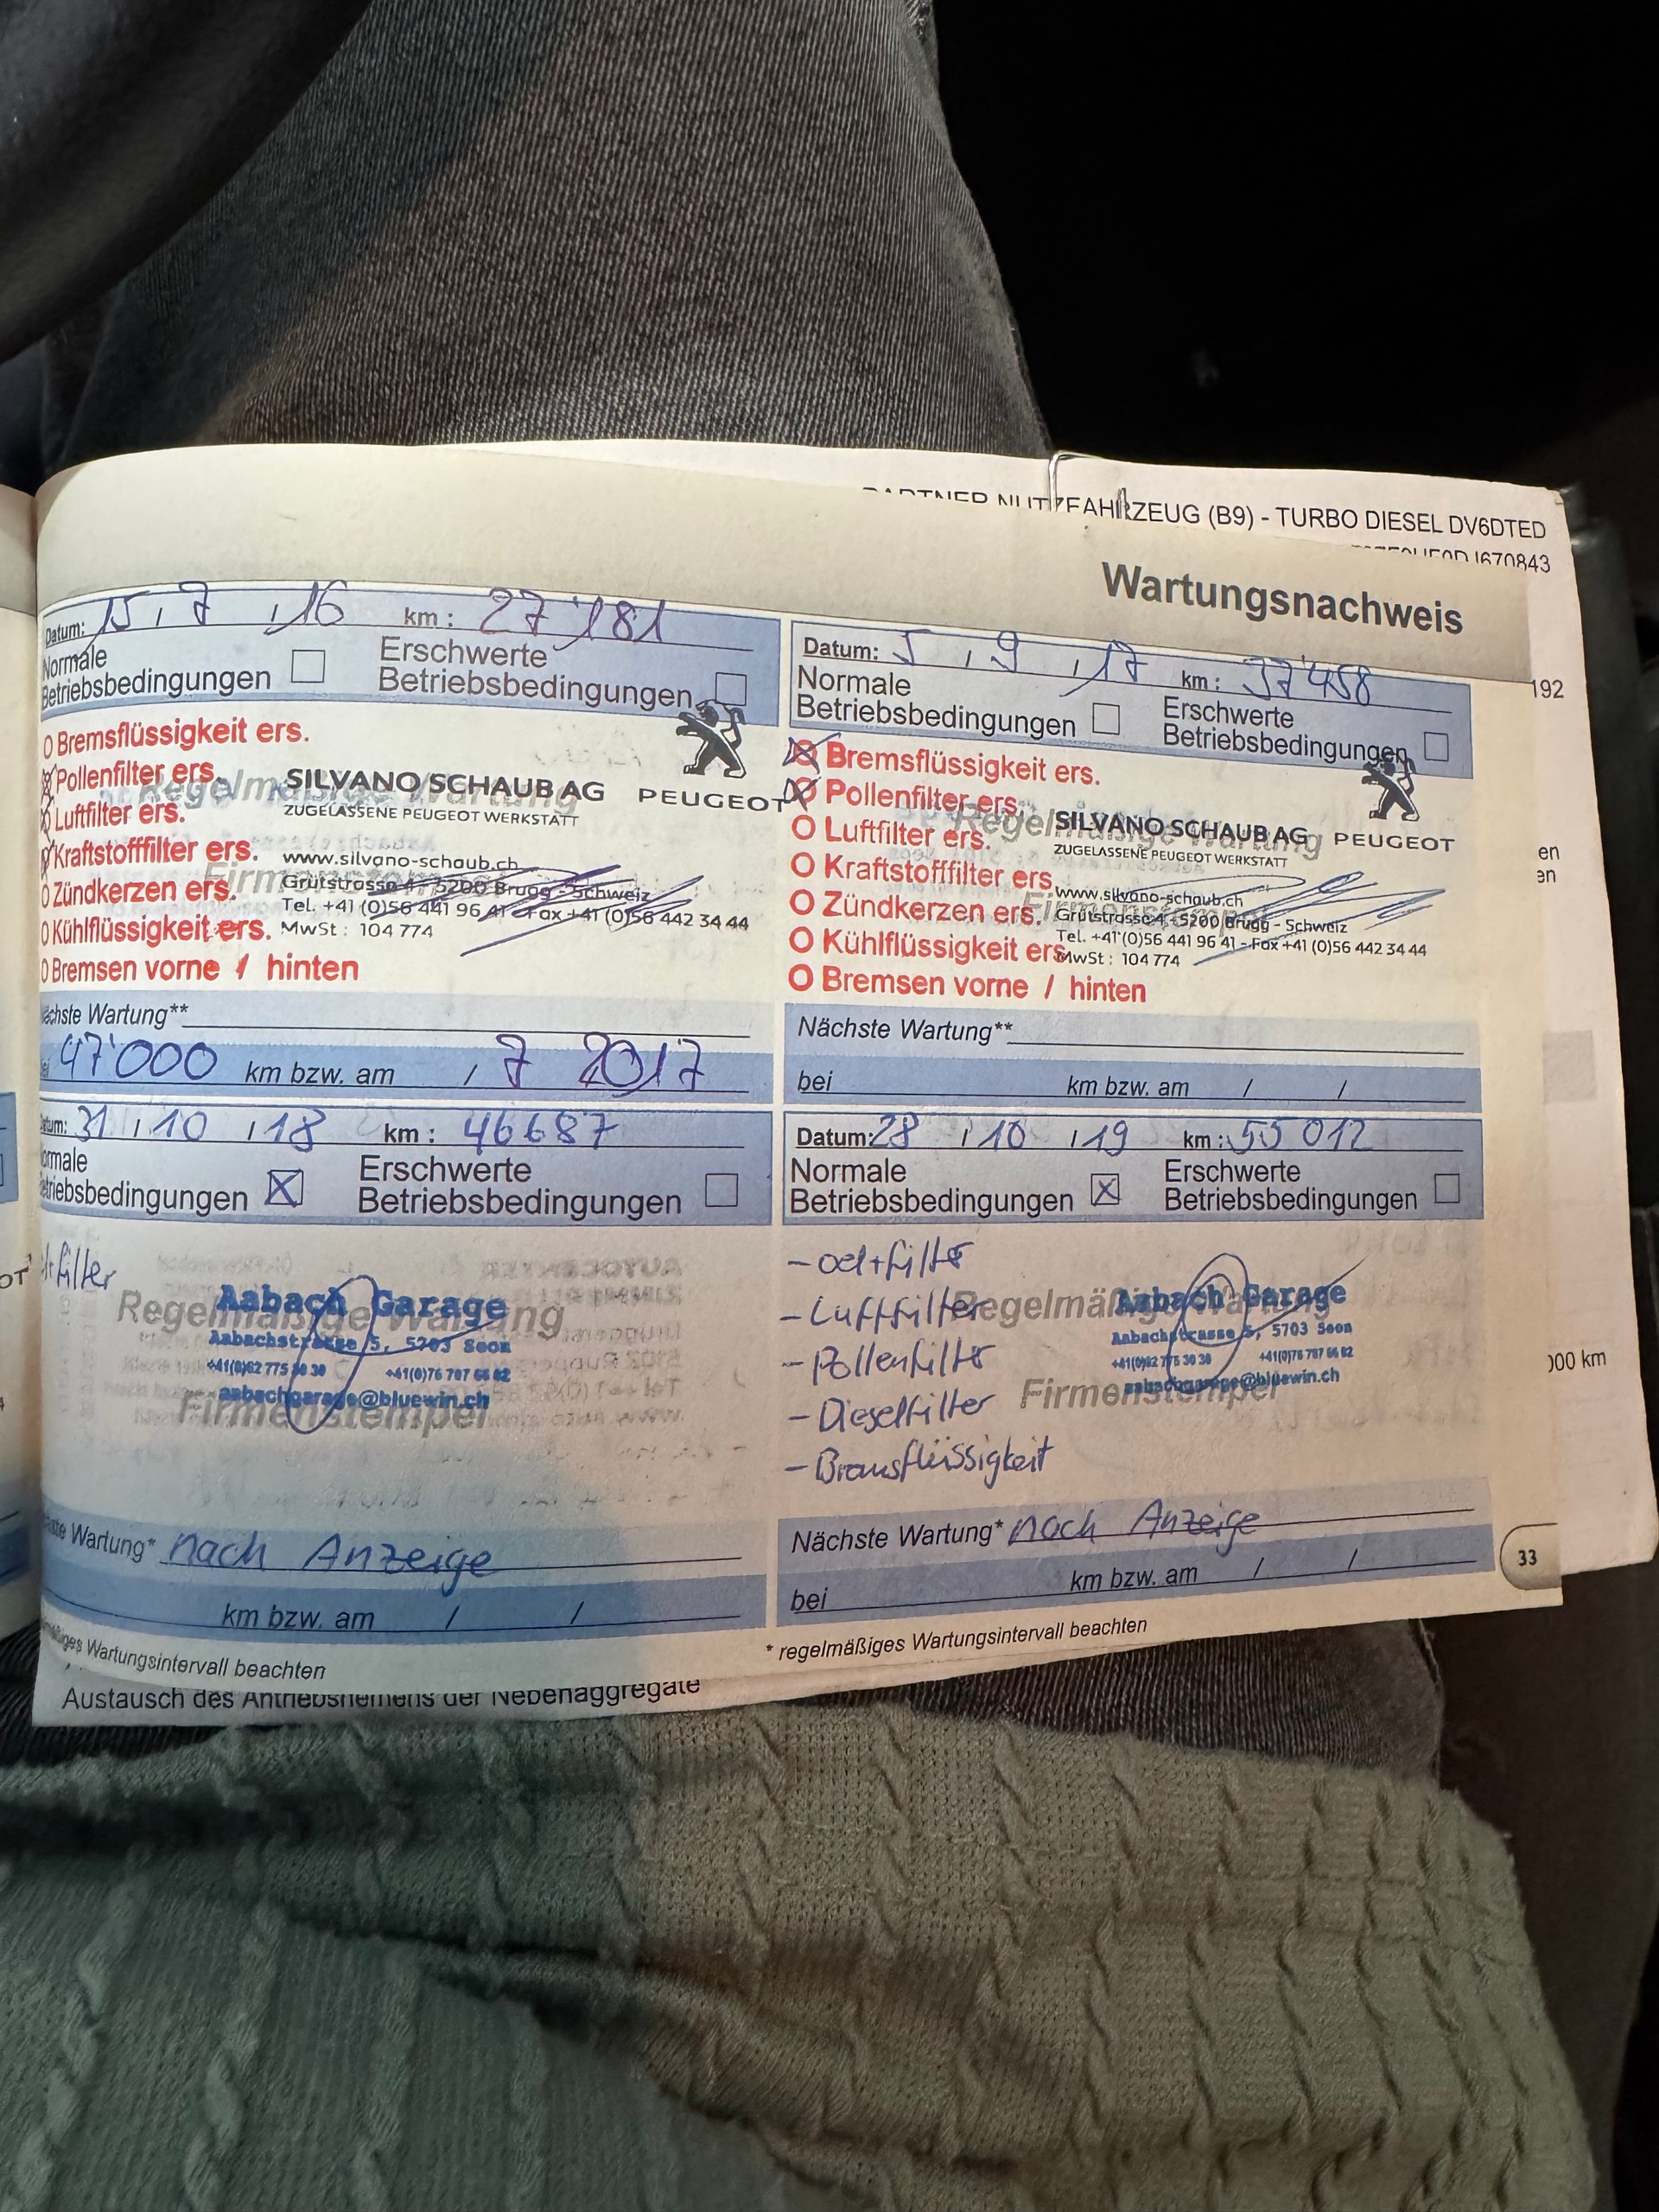 PARTNER NUTZFAHRZEUG (B9) - TURBO DIESEL DV6DTED
J670843
Wartungsnachweis
Datum: 15 / 7 / 16 km : 27'181
Normale Betriebsbedingungen
Erschwerte Betriebsbedingungen
O Bremsflüssigkeit ers.
Pollenfilter ers.
Luftfilter ers.
Kraftstofffilter ers.
O Zündkerzen ers.
O Kühlflüssigkeit ers.
O Bremsen vorne / hinten
Regelmäßige Wartung
Firmenstempel
SILVANO SCHAUB AG
ZUGELASSENE PEUGEOT WERKSTATT
PEUGEOT
www.silvano-schaub.ch
Grütstrasse 4 - 5200 Brugg - Schweiz
Tel. +41 (0)56 441 96 41 - Fax +41 (0)56 442 34 44
MwSt : 104 774
Nächste Wartung**
47'000 km bzw. am / 7 2017
Datum: 5 / 9 / 17 km : 37'458
Normale Betriebsbedingungen
Erschwerte Betriebsbedingungen
Bremsflüssigkeit ers.
Pollenfilter ers.
O Luftfilter ers.
O Kraftstofffilter ers.
O Zündkerzen ers.
O Kühlflüssigkeit ers.
O Bremsen vorne / hinten
Regelmäßige Wartung
Firmenstempel
SILVANO SCHAUB AG
ZUGELASSENE PEUGEOT WERKSTATT
PEUGEOT
www.silvano-schaub.ch
Grütstrasse 4 - 5200 Brugg - Schweiz
Tel. +41 (0)56 441 96 41 - Fax +41 (0)56 442 34 44
MwSt : 104 774
Nächste Wartung**
bei km bzw. am / /
Datum: 31 / 10 / 18 km : 46687
Normale Betriebsbedingungen X
Erschwerte Betriebsbedingungen
+filter
Regelmäßige Wartung
Firmenstempel
Aabach Garage
Aabachstrasse 5, 5703 Seon
+41(0)62 775 30 30 +41(0)76 707 66 02
aabachgarage@bluewin.ch
Wartung* nach Anzeige
km bzw. am / /
Wartungsintervall beachten
Datum: 28 / 10 / 19 km : 55 012
Normale Betriebsbedingungen X
Erschwerte Betriebsbedingungen
- oel+filter
- Luftfilter
- Pollenfilter
- Dieselfilter
- Bremsflüssigkeit
Regelmäßige Wartung
Firmenstempel
Aabach Garage
Aabachstrasse 5, 5703 Seon
+41(0)62 775 30 30 +41(0)76 707 66 02
aabachgarage@bluewin.ch
Nächste Wartung* nach Anzeige
bei km bzw. am / /
* regelmäßiges Wartungsintervall beachten
33
192
en
en
000 km
Austausch des Antriebsriemens der Nebenaggregate